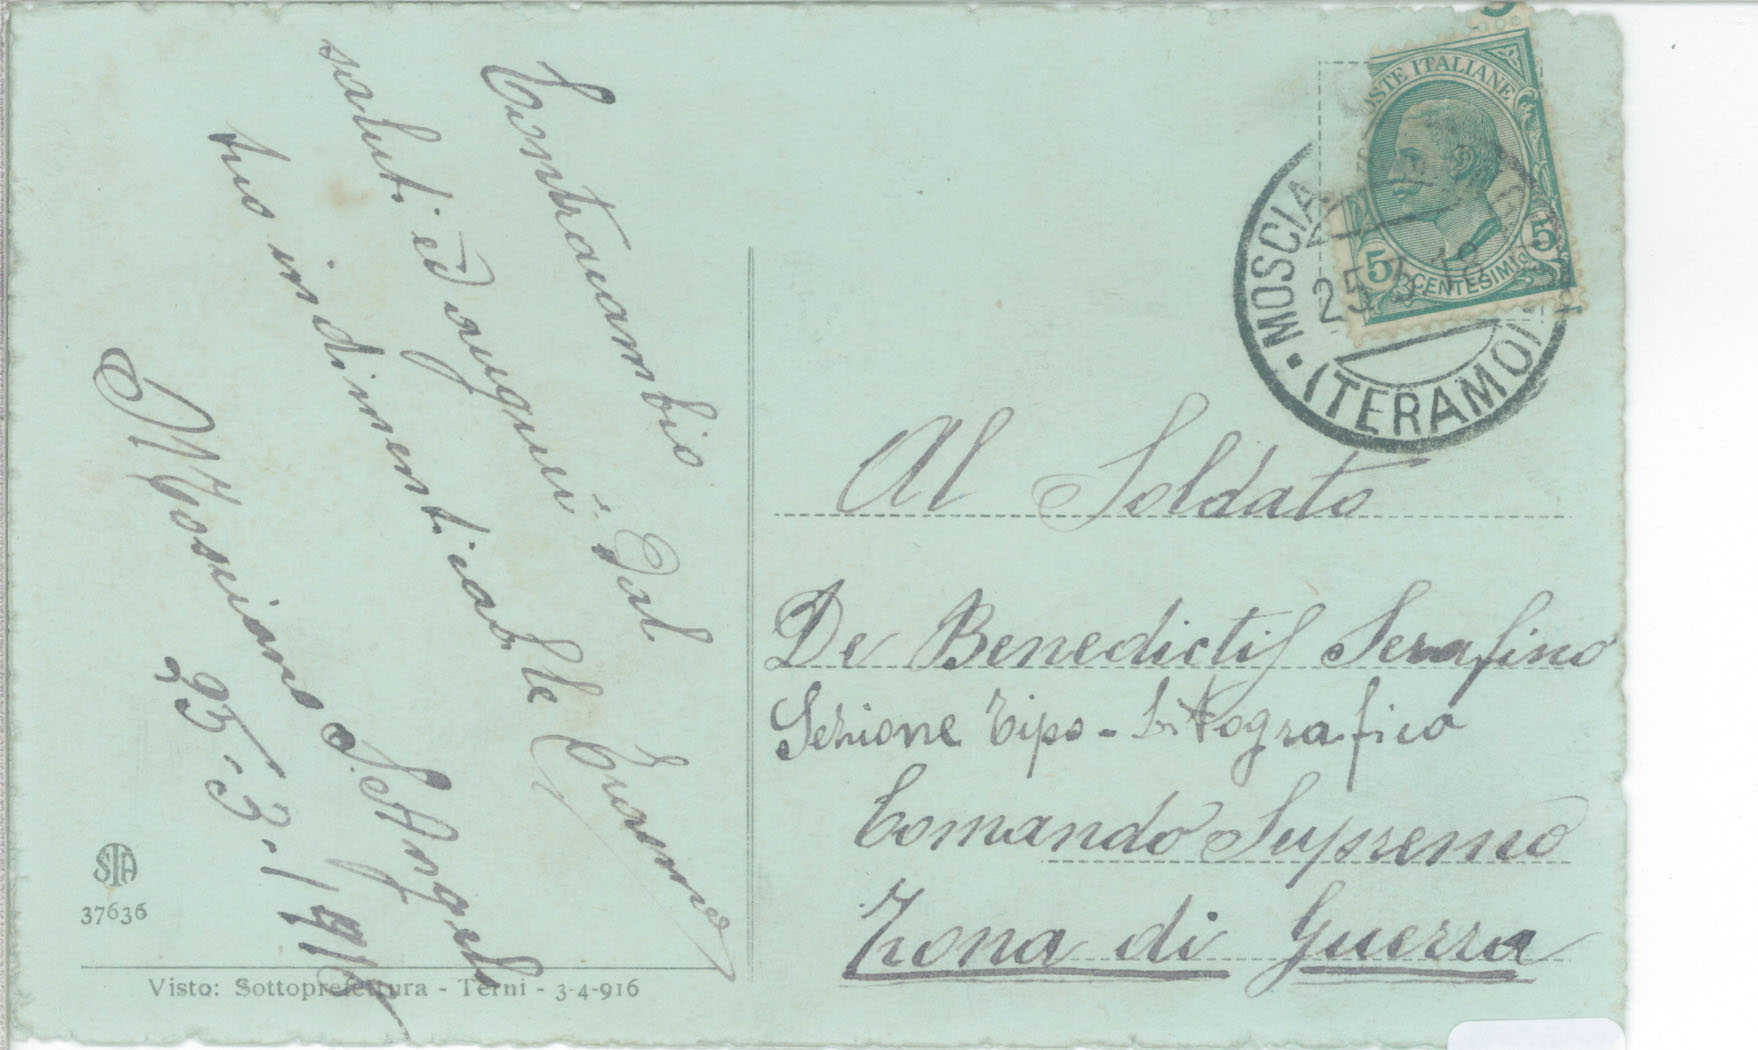 Contracambio
saluti ed auguri. Dal
tuo indimenticabile Erasmo
Mosciano S. Angelo
25-3-1918
STA
37636
Visto: Sottoprefettura - Terni - 3-4-916
POSTE ITALIANE
5 5
CENTESIMI
MOSCIA
25 3 18
(TERAMO)
Al Soldato
De Benedictis Serafino
Sezione Tipo-Litografico
Comando Supremo
Zona di Guerra